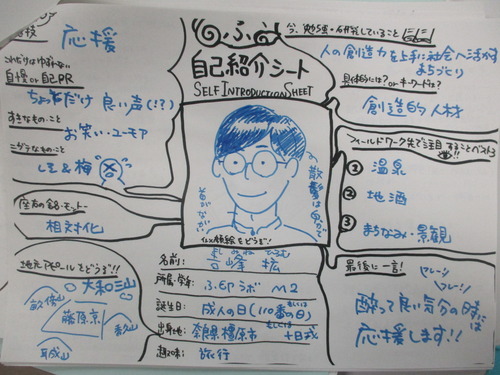 応援
自慢 or 自己PR
ちょっとだけ 良い声(!?)
すきなもの・こと
お笑い・ユーモア
ニガテなもの・こと
座右の銘・モットー
相対化
地元アピールをどうぞ!!
大和三山
畝傍山
藤原京
香久山
耳成山
ふ
自己紹介シート
SELF INTRODUCTION SHEET
似顔絵をどうぞ!
名前:
吉峰 拡
所属・学年:
ふむラボ M2
誕生日:
成人の日(110番の日)
出身地:
奈良県橿原市
十日戎
趣味:
旅行
今、勉強・研究していること
人の創造力を上手に社会へ活かす
まちづくり
具体的には? or キーワードは?
創造的人材
フィールドワーク先で注目することベスト3!!
① 温泉
② 地酒
③ まちなみ・景観
最後に一言!
フレーッ
フレーッ
酔って良い気分の時には
応援します!!